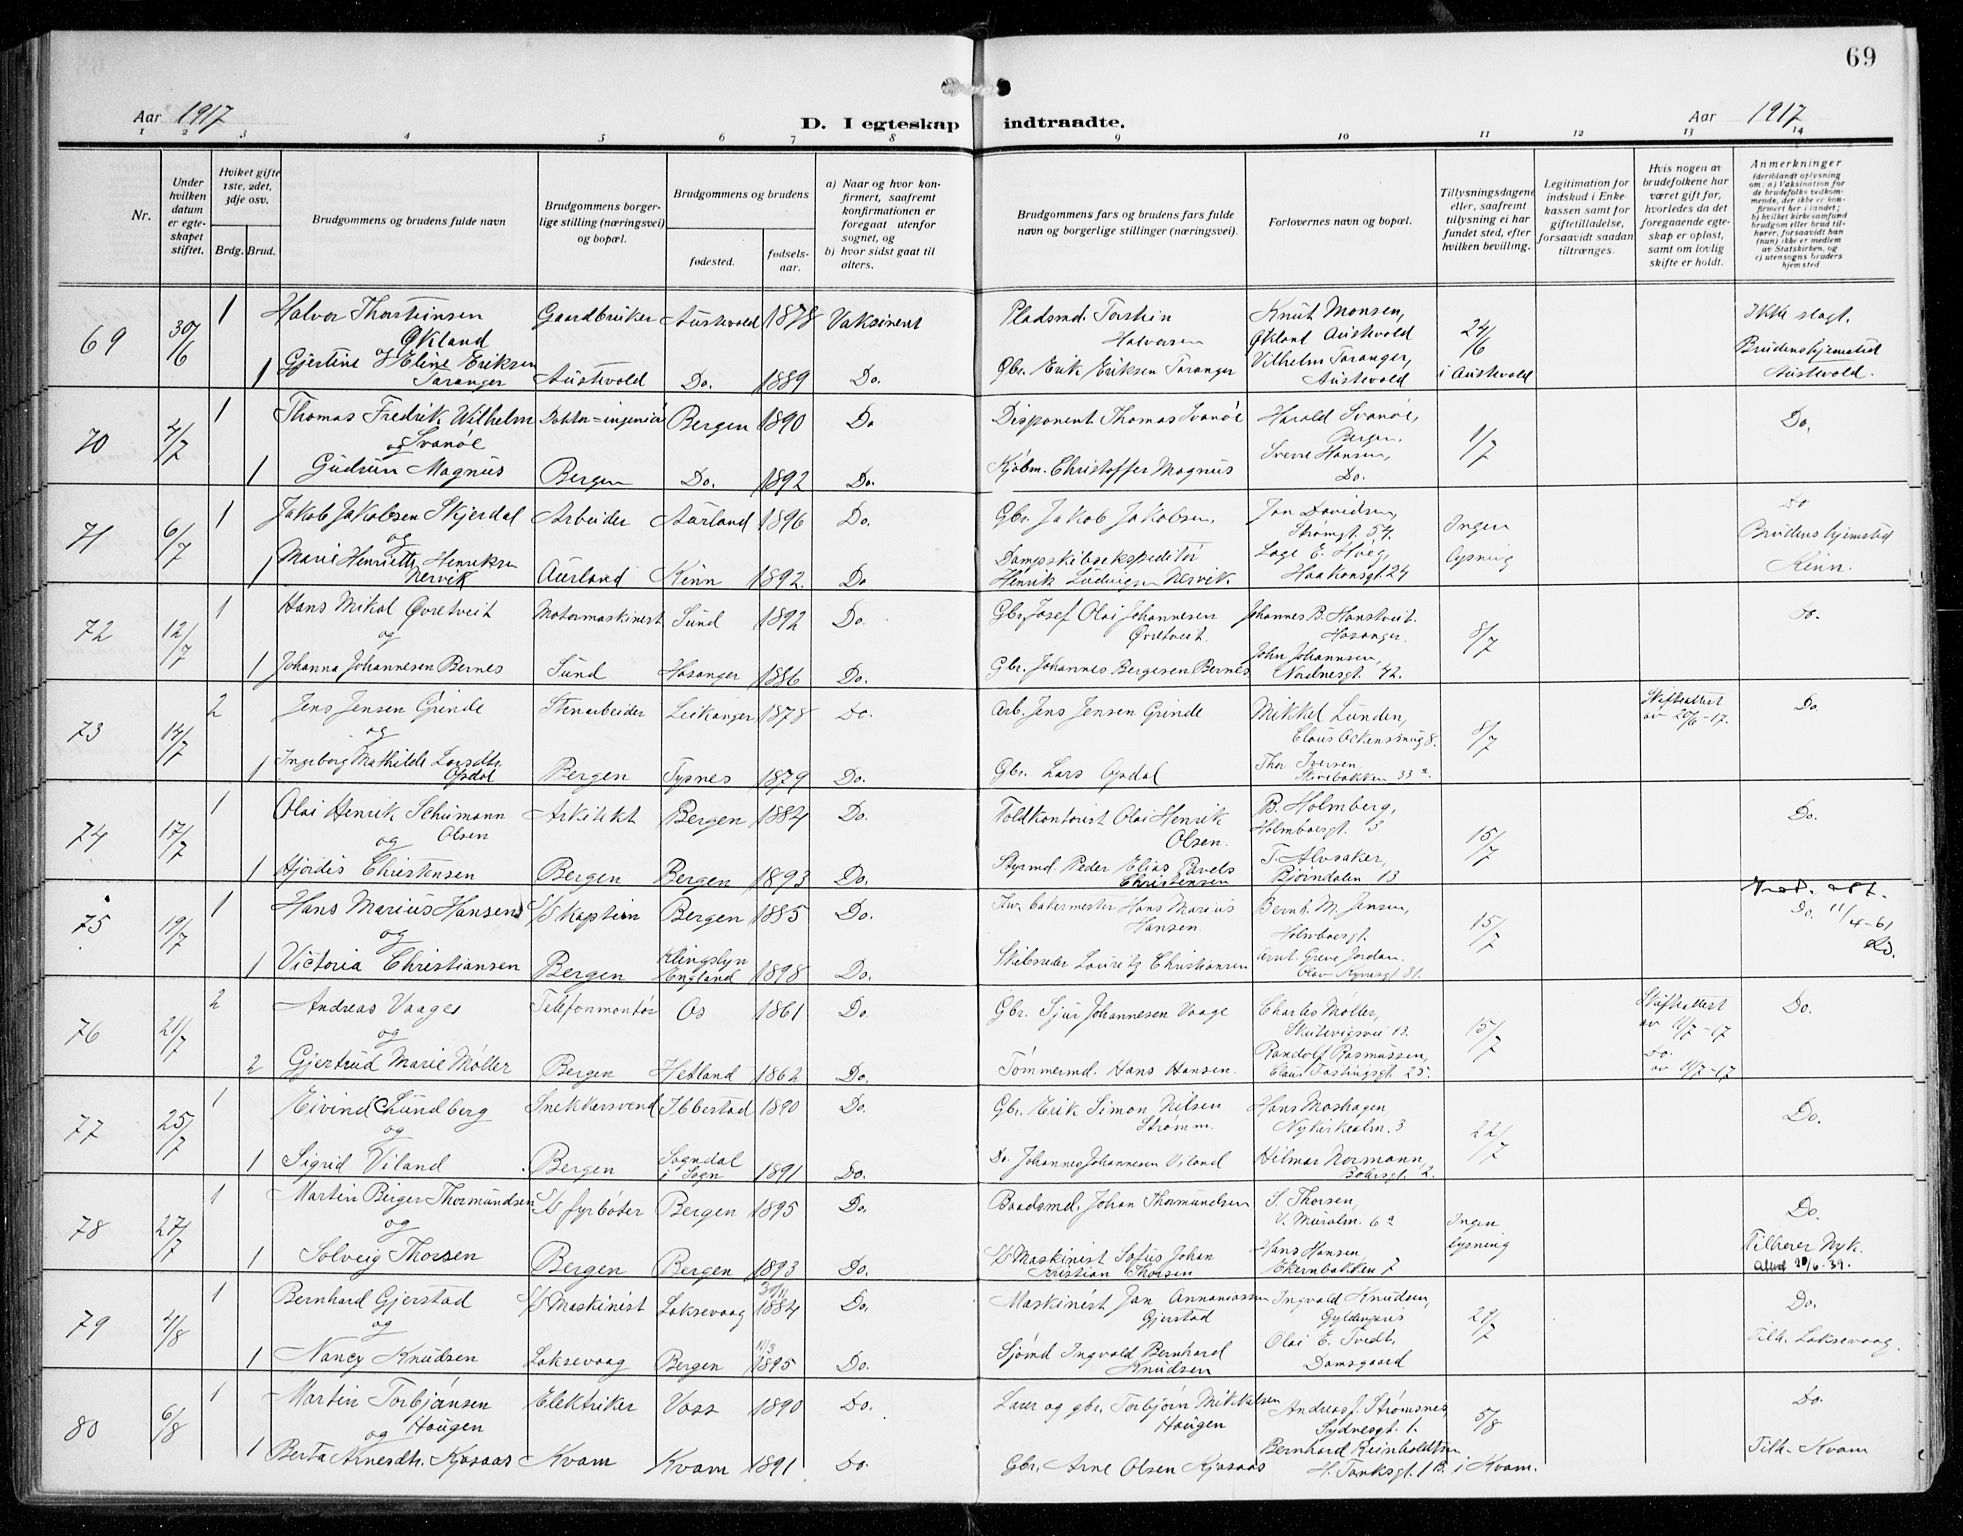 69
Aar 1917
D. I egteskap indtraadte.
Aar 1917
1 2 3 4 5 6 7 8 9 10 11 12 13 14
Nr.
Under hvilken datum er egteskapet stiftet.
Hviket gifte 1ste, 2det, 3dje osv.
Brdg. Brud.
Brudgommens og brudens fulde navn
Brudgommens borgerlige stilling (næringsvei) og bopæl.
Brudgommens og brudens
fødested.
fødselsaar.
a) Naar og hvor konfirmert, saafremt konfirmationen er foregaat utenfor sognet, og
b) hvor sidst gaat til alters.
Brudgommens fars og brudens fars fulde navn og borgerlige stillinger (næringsvei).
Forlovernes navn og bopæl.
Tillysningsdagene eller, saafremt tillysning ei har fundet sted, efter hvilken bevilling.
Legitimation for indskud i Enkekassen samt for giftetilladelse, forsaavidt saadan tiltrænges.
Hvis nogen av brudefolkene har været gift før, hvorledes da det foregaaende egteskap er opløst, samt om lovlig skifte er holdt.
Anmerkninger (deriblandt oplysning om: a) Vaksination for de brudefolks vedkommende, der ikke er konfirmert her i landet; b) hvilket kirkesamfund brudgom eller brud tilhører, forsaavidt han (hun) ikke er medlem av Statskirken, og c) utensogns bruders hjemsted
69 30/6 1 Halvor Thorsteinsen Økland Gaardbruker Austevold 1878 Vaksinert Pladsmd. Torstein Halvorsen Knut Monsen, Økland Austevold 24/6 Ikke slegt.
1 Gjertine Eline Eriksen Taranger Austevold Do. 1889 Do. Gbr. Erik Eriksen Taranger Vilhelm Taranger, Austevold i Austevold Brudens hjemsted Austevold.
70 4/7 1 Thomas Fredrik Wilhelm Svanöe Doktor=ingeniör Bergen 1890 Do Disponent Thomas Svanöe Harald Svanöe, Bergen. 1/7 Do.
og
1 Gudrun Magnus Bergen Do. 1892 Do. Kjöbm. Christoffer Magnus Sverre Hansen, Do.
71 6/7 1 Jakob Jakobsen Skjerdal Arbeider Aurland 1896 Do. Gbr. Jakob Jakobsen, Jon Davidsen, Strømgt. 54. Ingen lysning Do
og
1 Marie Henriette Henriksen Nervik Aurland Kinn 1892. Do Dampskibsekspeditör Henrik Ludvigsen Nervik. Lage E. Hveg, Haakonsgt. 24 Brudens hjemsted Kinn.
72 12/7 1 Hans Mikal Øvretveit Motormaskinist Sund 1892 Do. Gbr. Josef Olai Johannesen Øvretveit. Johannes B. Hanstveit. Hosanger. 8/7 Do.
og
1 Johanna Johannesen Bernes Sund Hosanger 1886 Do. Gbr. Johannes Bergesen Bernes John Johannsen, Nordnesgt. 42.
73 14/7 2 Jens Jensen Grinde Stenarbeider Leikanger 1878 Do. Arb. Jens Jensen Grinde Mikkel Lunden, Claus Ockensmug 8. 8/7 Skifteattest av 20/6-17. Do.
og
1 Ingeborg Mathilde Larsdtr. Opdal Bergen Tysnes 1879 Do. Gbr. Lars Opdal Thor Iversen, 33 a.
74 17/7 1 Olai Henrik Schumann Olsen Arkitekt Bergen 1884 Do. Toldkontorist Olai Henrik Olsen. B. Holmberg, Holmboesgt. 3 15/7 Do.
og
1 Hjördis Christensen Bergen Bergen 1893 Do. Styrmd. Peder Elias Pavels Christensen T. Alvsaker, Bjørndalen 13
75 19/7 1 Hans Marius Hansen S/S Kaptein Bergen 1885 Do. Hans Marius Hansen. Bernh. M. Jensen, Holmboesgt. 15/7 Do. 11/4-61
og
1 Victoria Christiansen Bergen England 1898 Do. Skibsreder Lauritz Christiansen Arnt Greve Jordan. Olav Kyrresgt. 31.
76 21/7 2 Andreas Vaage Telefonmontör Os 1861 Do. Gbr. Sjur Johannesen Vaage Charles Møller, Skutevigsvei 13. 15/7 Skifteattest av 11/7-17 Do.
og
2 Gjertrud Marie Møller Bergen Hetland 1862 Do. Tömmermd. Hans Hansen. Randolf Rasmussen, Claus Fastingsgt. 25. Do. av 11/7-17
77 25/7 1 Eivind Lundberg Snekkersvend Ibbestad 1890 Do. Gbr. Erik Simon Nilsen Strømm. Hans Moshagen, Nykirkealm. 3 22/7 Do.
og
1 Sigrid Viland Bergen Sogndal i Sogn 1891 Do. Do. Johannes Johannesen Viland Hilmar Normann, 2.
78 27/7 1 Martin Birger Thormundsen S/S fyrböter Bergen 1895 Do. Baadsmd. Johan Thormundsen S. Thorsen, V. Muralm. 6 a Ingen lysning Do.
og
1 Solveig Thorsen Bergen Bergen 1893 Do. S/S Maskinist Sofus Johan Kristian Thorsen Hans Hansen, Ekernbakken 7 Tilhører Nyk. 20/6-39.
79 4/8 1 Bernhard Gjerstad S/S Maskinist Laksevaag 1884 Do. Maskinist Jan Annaniassen Gjerstad Ingvald Knudsen, Gyldenpris 29/7 Do.
og
1 Nancy Knudsen Laksevaag Bergen 11/3 1895 Do. Sjømd Ingvald Bernhard Knudsen Olai E. Tvedt, Damsgaard Tilh. Laksevaag.
80 6/8 1 Martin Torbjörnsen Haugen Elektriker Voss 1890 Do. Lærer og gbr. Torbjörn Mikkelsen Haugen Andreas J. Strømsnes, Sydnesgt. 1. 5/8 Do.
og
1 Berta Arnesdtr. Kjosaas Kvam Kvam 1891 Do. Gbr. Arne Olsen Kjosaas Bernhard Reinholdtsen H. Tanksgt. 1 B. i Kvam. Tilh. Kvam